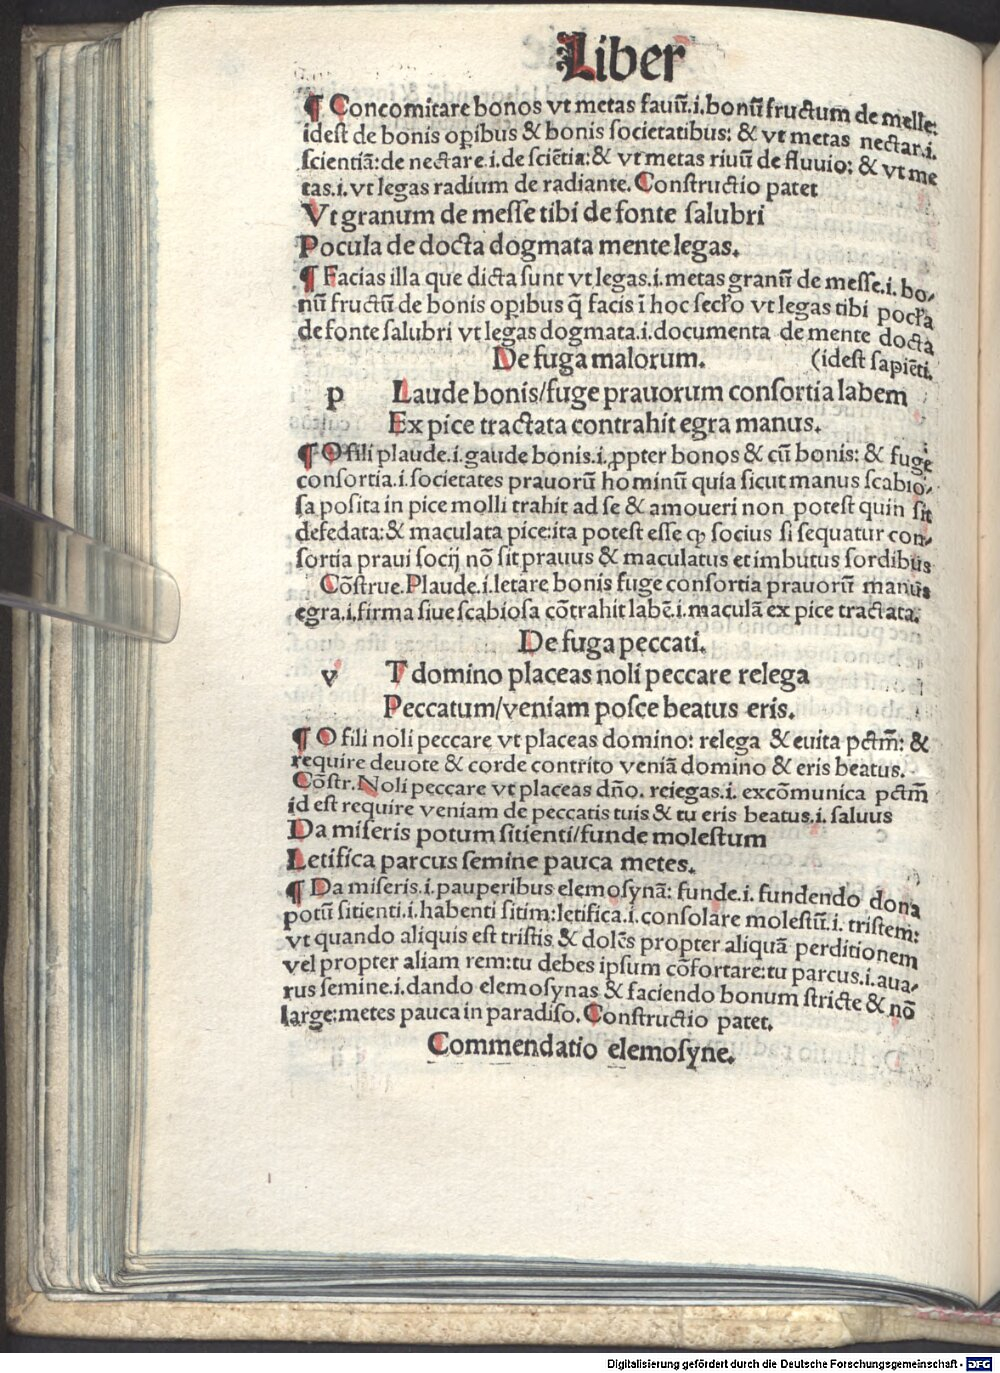 Liber
¶ Concomitare bonos vt metas fauū.i.bonū fructum de melle:
idest de bonis opibus & bonis societatibus: & vt metas nectar.i.
scientiā: de nectare.i.de sciētia: & vt metas riuū de fluuio: & vt me
tas.i. vt legas radium de radiante. Constructio patet
Vt granum de messe tibi de fonte salubri
Pocula de docta dogmata mente legas.
¶ Facias illa que dicta sunt vt legas.i.metas granū de messe.i.bo/
nū fructū de bonis opibus q̄ facis ī hoc secło vt legas tibi pocła
de fonte salubri vt legas dogmata.i.documenta de mente docta
De fuga malorum. (idest sapiēti.
p Laude bonis/fuge prauorum consortia labem
Ex pice tractata contrahit egra manus.
¶ O fili plaude.i.gaude bonis.i.ꝓpter bonos & cū bonis: & fuge
consortia.i.societates prauorū hominū quia sicut manus scabio/
sa posita in pice molli trahit ad se & amoueri non potest quin sit
defedata: & maculata pice: ita potest esse ꝙ socius si sequatur con/
sortia praui socij nō sit prauus & maculatus et imbutus sordibus
Cōstrue. Plaude.i.letare bonis fuge consortia prauorū manus
egra.i.firma siue scabiosa cōtrahit labē.i.maculā ex pice tractata.
De fuga peccati.
v T domino placeas noli peccare relega
Peccatum/veniam posce beatus eris.
¶ O fili noli peccare vt placeas domino: relega & euita pctm̄: &
require deuote & corde contrito veniā domino & eris beatus.
Cōstr. Noli peccare vt placeas dn̄o. reiegas.i. excōmunica pctm̄
id est require veniam de peccatis tuis & tu eris beatus.i. saluus
Da miseris potum sitienti/funde molestum
Letifica parcus semine pauca metes.
¶ Da miseris.i.pauperibus elemosynā: funde.i. fundendo dona
potū sitienti.i.habenti sitim: letifica.i.consolare molestū.i. tristem:
vt quando aliquis est tristis & dolēs propter aliquā perditionem
vel propter aliam rem: tu debes ipsum cōfortare: tu parcus.i.aua/
rus semine.i.dando elemosynas & faciendo bonum stricte & nō
large: metes pauca in paradiso. Constructio patet.
Commendatio elemosyne.
Digitalisierung gefördert durch die Deutsche Forschungsgemeinschaft - DFG